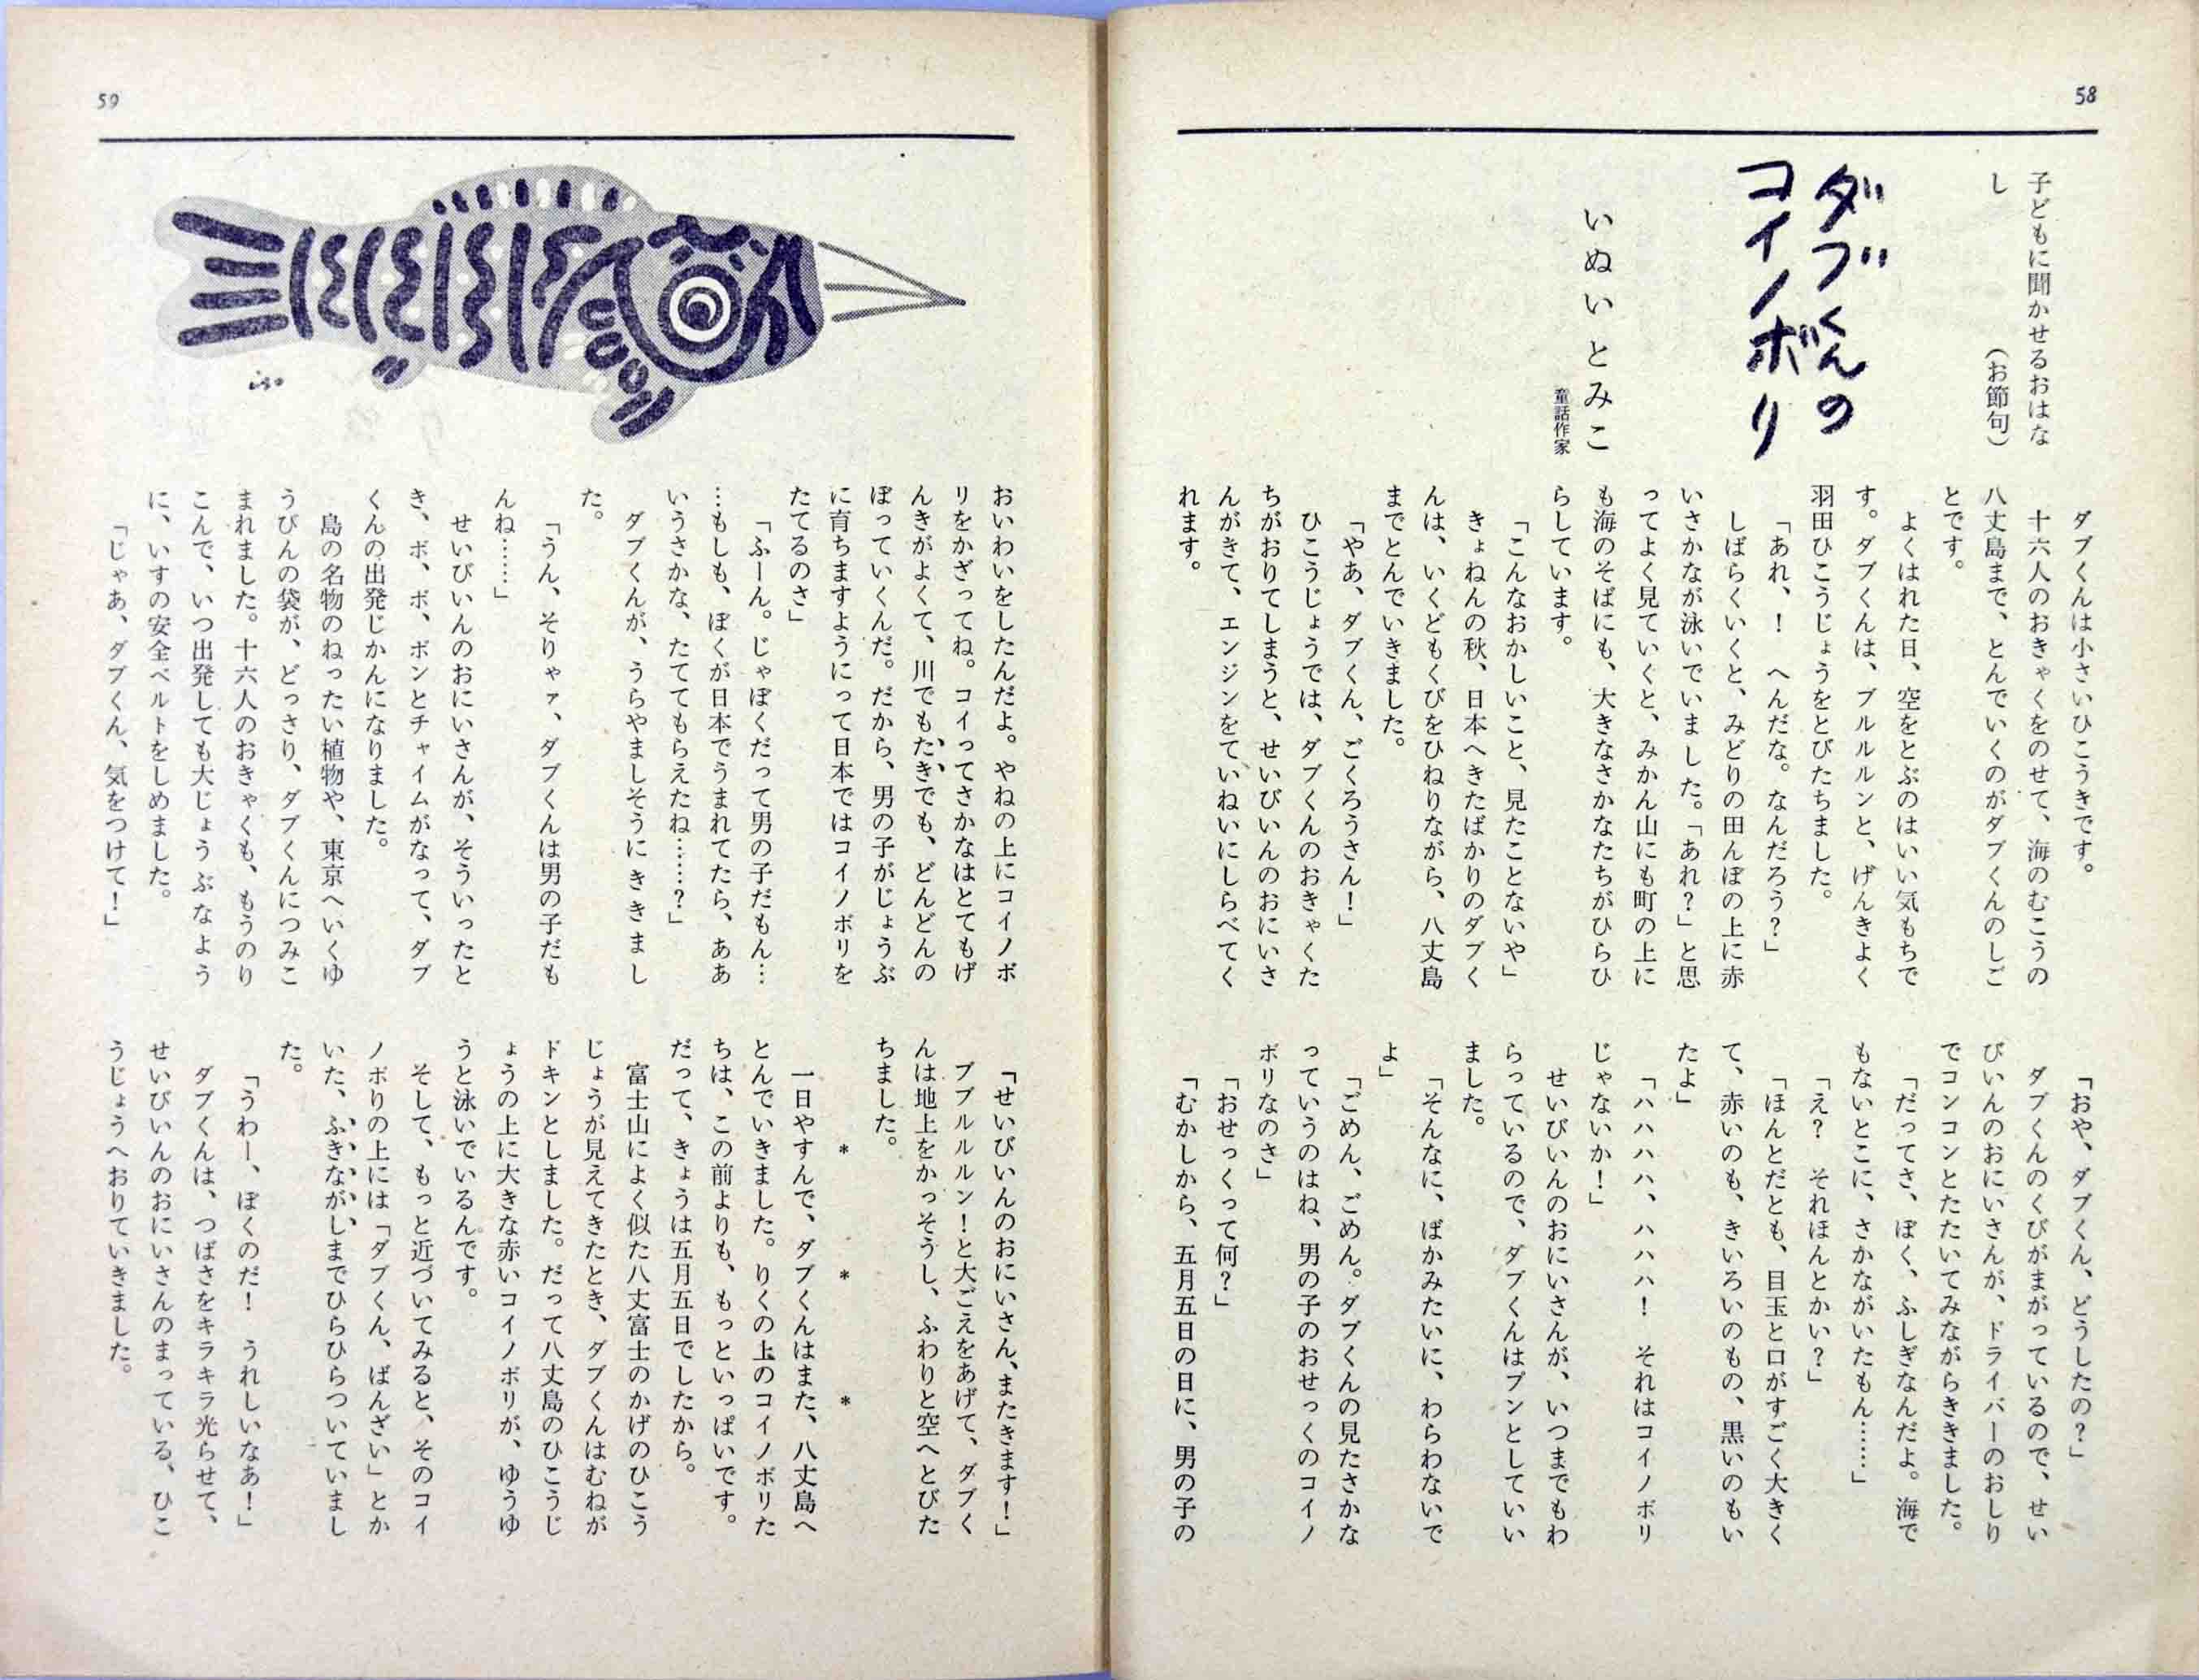 58
子どもに聞かせるおはな
し　　　　（お節句）
ダブくんの
コイノボリ
いぬいとみこ
童話作家
ダブくんは小さいひこうきです。
十六人のおきゃくをのせて、海のむこうの
八丈島まで、とんでいくのがダブくんのしご
とです。
よくはれた日、空をとぶのはいい気もちで
す。ダブくんは、ブルルルンと、げんきよく
羽田ひこうじょうをとびたちました。
「あれ、！　へんだな。なんだろう？」
しばらくいくと、みどりの田んぼの上に赤
いさかなが泳いでいました。「あれ？」と思
ってよく見ていくと、みかん山にも町の上に
も海のそばにも、大きなさかなたちがひらひ
らしています。
「こんなおかしいこと、見たことないや」
きょねんの秋、日本へきたばかりのダブく
んは、いくどもくびをひねりながら、八丈島
までとんでいきました。
「やあ、ダブくん、ごくろうさん！」
ひこうじょうでは、ダブくんのおきゃくた
ちがおりてしまうと、せいびいんのおにいさ
んがきて、エンジンをていねいにしらべてく
れます。
「おや、ダブくん、どうしたの？」
ダブくんのくびがまがっているので、せい
びいんのおにいさんが、ドライバーのおしり
でコンコンとたたいてみながらききました。
「だってさ、ぼく、ふしぎなんだよ。海で
もないとこに、さかながいたもん……」
「え？　それほんとかい？」
「ほんとだとも、目玉と口がすごく大きく
て、赤いのも、きいろいのもの、黒いのもい
たよ」
「ハハハハハ、ハハハ！　それはコイノボリ
じゃないか！」
せいびいんのおにいさんが、いつまでもわ
らっているので、ダブくんはプンとしていい
ました。
「そんなに、ばかみたいに、わらわないで
よ」
「ごめん、ごめん。ダブくんの見たさかな
っていうのはね、男の子のおせっくのコイノ
ボリなのさ」
「おせっくって何？」
「むかしから、五月五日の日に、男の子の
59
iso
おいわいをしたんだよ。やねの上にコイノボ
リをかざってね。コイってさかなはとてもげ
んきがよくて、川でもたきでも、どんどんの
ぼっていくんだ。だから、男の子がじょうぶ
に育ちますようにって日本ではコイノボリを
たてるのさ」
「ふーん。じゃぼくだって男の子だもん…
…もしも、ぼくが日本でうまれてたら、ああ
いうさかな、たててもらえたね……？」
ダブくんが、うらやましそうにききまし
た。
「うん、そりゃァ、ダブくんは男の子だも
んね……」
せいびいんのおにいさんが、そういったと
き、ボ、ボ、ボンとチャイムがなって、ダブ
くんの出発じかんになりました。
島の名物のねったい植物や、東京へいくゆ
うびんの袋が、どっさり、ダブくんにつみこ
まれました。十六人のおきゃくも、もうのり
こんで、いつ出発しても大じょうぶなよう
に、いすの安全ベルトをしめました。
「じゃあ、ダブくん、気をつけて！」
「せいびいんのおにいさん、またきます！」
ブブルルルン！と大ごえをあげて、ダブく
んは地上をかっそうし、ふわりと空へとびた
ちました。
＊　＊　＊
一日やすんで、ダブくんはまた、八丈島へ
とんでいきました。りくの上のコイノボリた
ちは、この前よりも、もっといっぱいです。
だって、きょうは五月五日でしたから。
富士山によく似た八丈富士のかげのひこう
じょうが見えてきたとき、ダブくんはむねが
ドキンとしました。だって八丈島のひこうじ
ょうの上に大きな赤いコイノボリが、ゆうゆ
うと泳いでいるんです。
そして、もっと近づいてみると、そのコイ
ノボリの上には「ダブくん、ばんざい」とか
いた、ふきながしまでひらひらついていまし
た。
「うわー、ぼくのだ！　うれしいなあ！」
ダブくんは、つばさをキラキラ光らせて、
せいびいんのおにいさんのまっている、ひこ
うじょうへおりていきました。